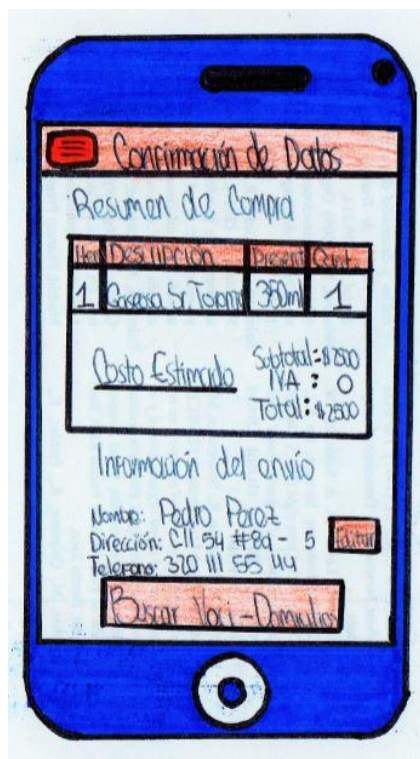 Confirmación de Datos
Resumen de Compra
Item Descripción Present Cant
1 Gaseosa Sr. 350ml 1
Costo Estimado
Subtotal: $2500
IVA : 0
Total: $2500
Información del envío
Nombre: Pedro Perez
Dirección: Cll 54 #8a - 5 Editar
Telefono: 320 111 55 44
Buscar Veci-Domicilios